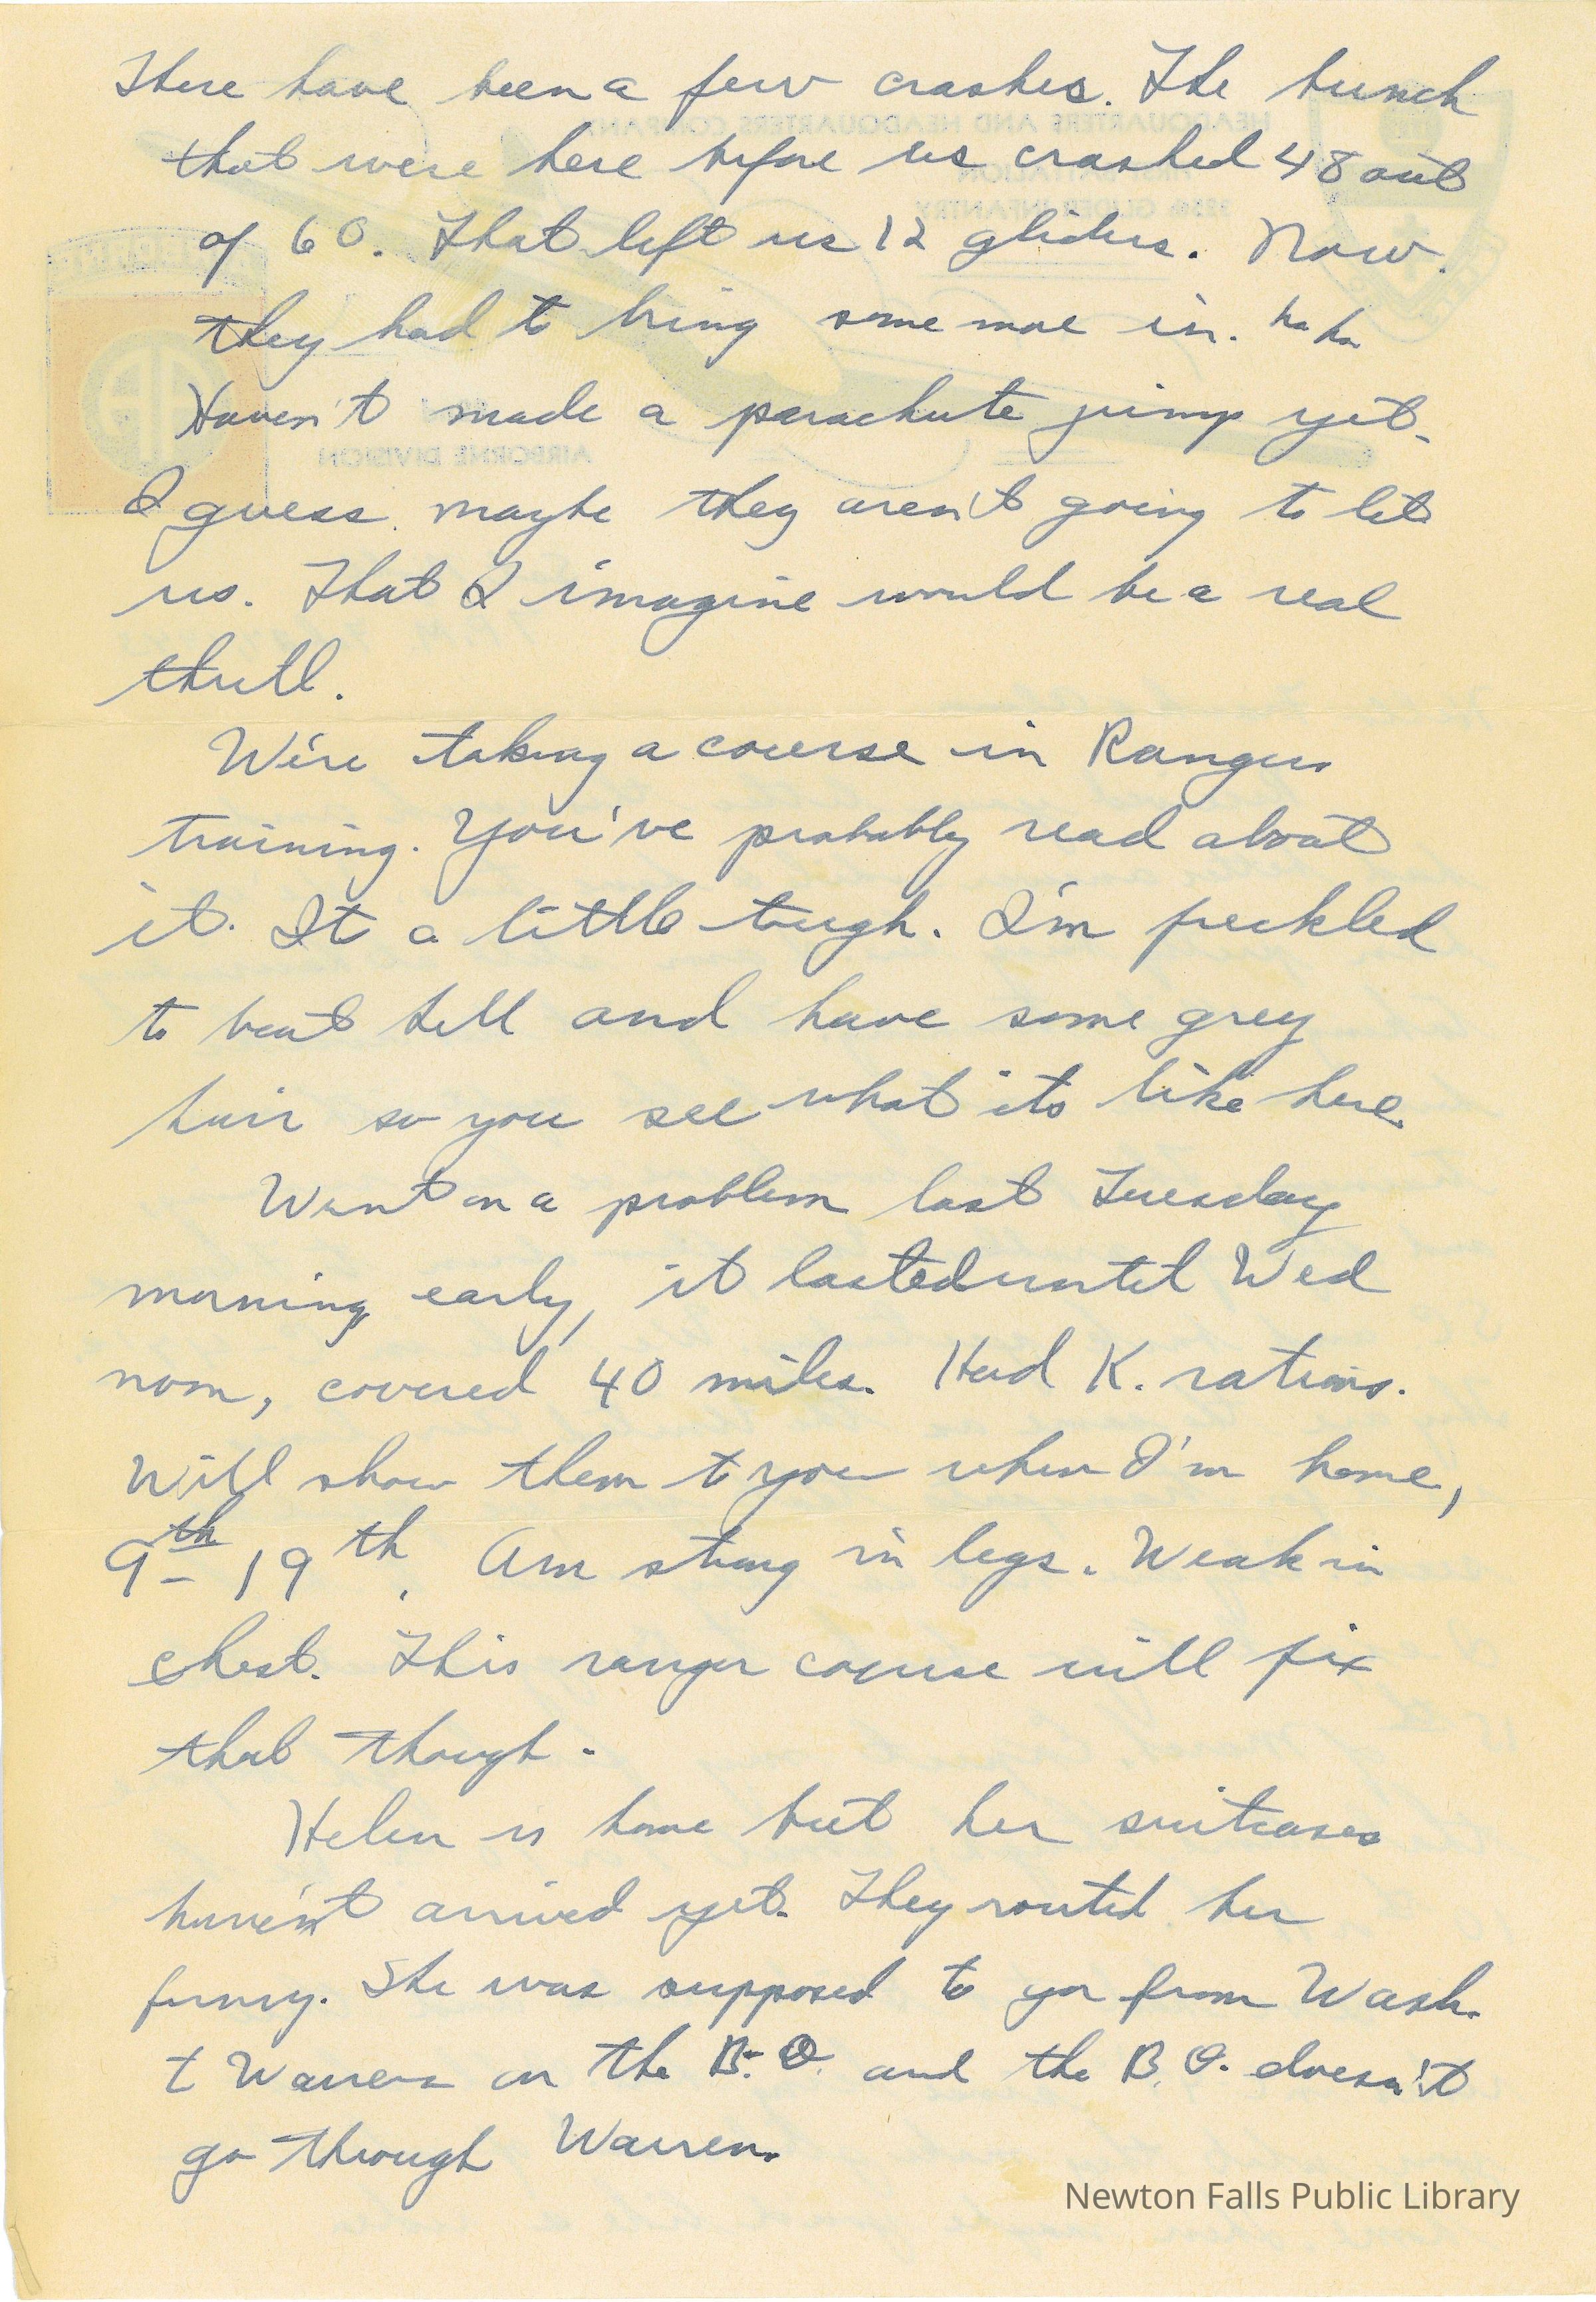 There have been a few crashes. The bunch
that were here before us crashed 48 out
of 60. That left us 12 gliders. Now.
they had to bring some more in. ha ha
Haven't made a parachute jump yet.
I guess maybe they aren't going to let
us. That I imagine would be a real
thrill.
We're taking a course in Rangers
training. You've probably read about
it. Its a little tough. I'm freckled
to beat hell and have some grey
hair so you see what its like here.
Went on a problem last Tuesday
morning early, it lasted until Wed
noon, covered 40 miles. Had K. rations.
Will show them to you when I'm home,
9th 19th. Am strong in legs. Weak in
chest. This ranger course will fix
that though.
Helen is home but her suitcases
haven't arrived yet. They routed her
funny. She was supposed to go from Wash.
t Warren on the B. O. and the B. O. doesn't
go through Warren.
HEADQUARTERS AND HEADQUARTERS COMPANY
BATTALION
325th GLIDER INFANTRY
AIRBORNE DIVISION
Newton Falls Public Library